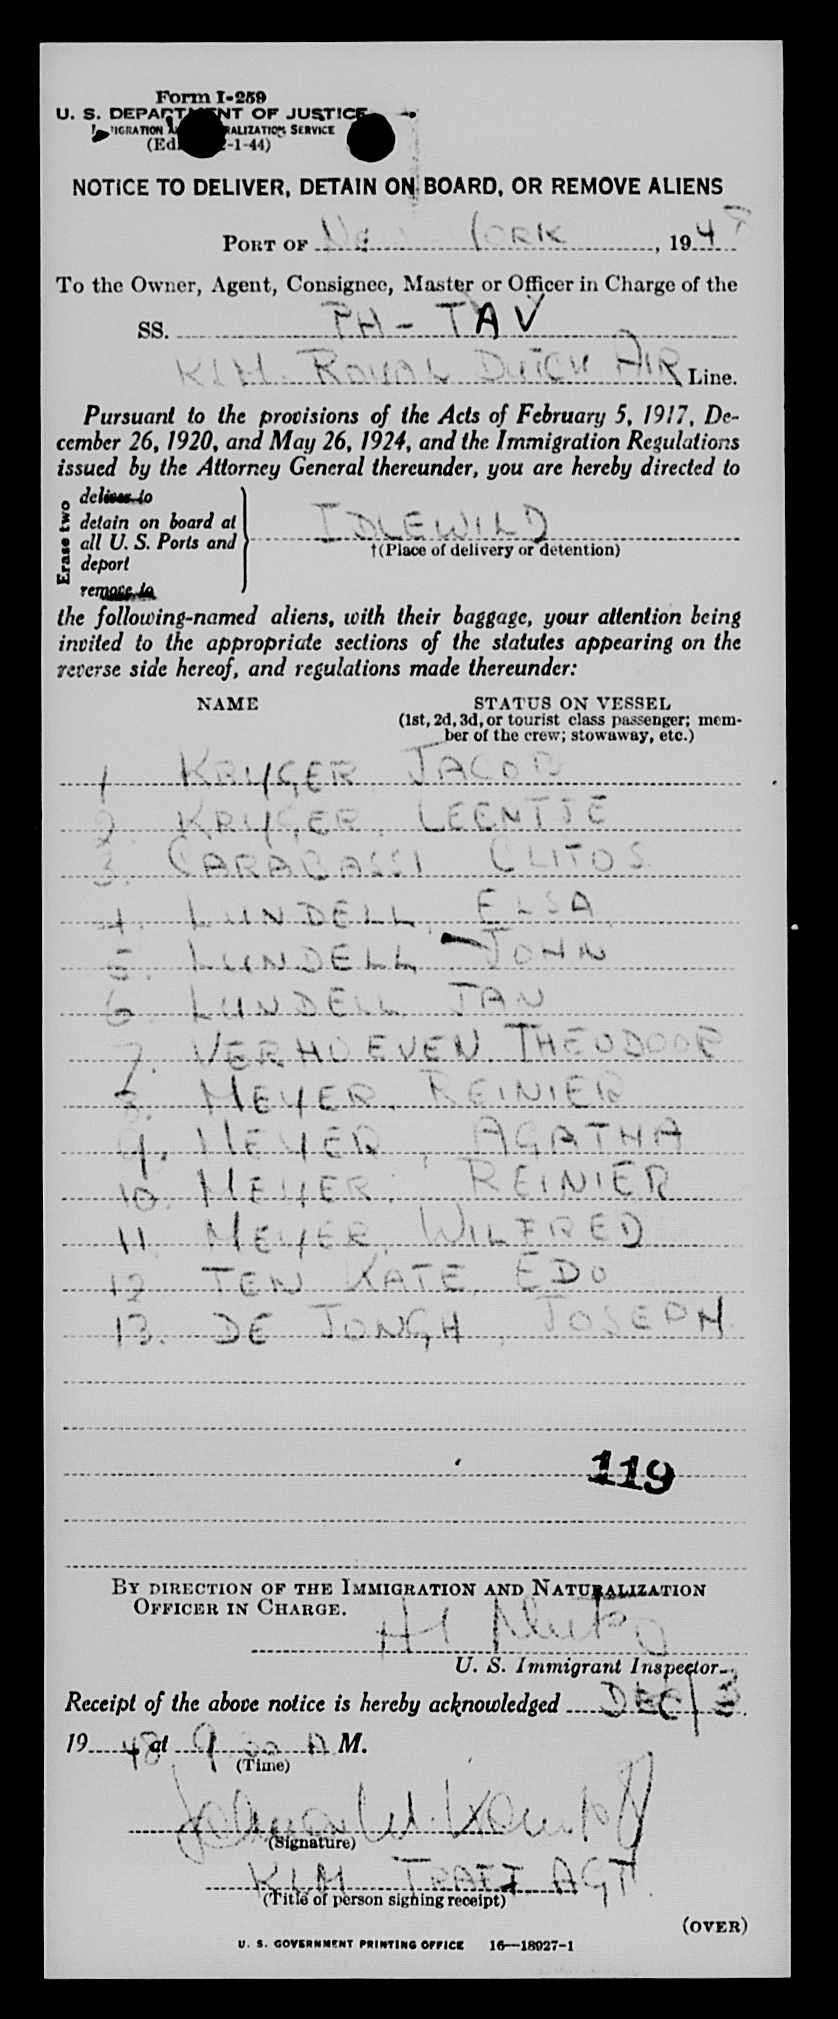 Form I-259
U. S. DEPARTMENT OF JUSTICE
IMMIGRATION AND NATURALIZATION SERVICE
(Ed. -1-44)
NOTICE TO DELIVER, DETAIN ON BOARD, OR REMOVE ALIENS
PORT OF New York, 1948
To the Owner, Agent, Consignee, Master or Officer in Charge of the
SS. PH-TAV
KLM ROYAL DUTCH AIR Line.
Pursuant to the provisions of the Acts of February 5, 1917, De-
cember 26, 1920, and May 26, 1924, and the Immigration Regulations
issued by the Attorney General thereunder, you are hereby directed to
Erase two
deliver to
detain on board at
all U. S. Ports and
deport
remove to
IDLEWILD
†(Place of delivery or detention)
the following-named aliens, with their baggage, your attention being
invited to the appropriate sections of the statutes appearing on the
reverse side hereof, and regulations made thereunder:
NAME STATUS ON VESSEL
(1st, 2d, 3d, or tourist class passenger; mem-
ber of the crew; stowaway, etc.)
1 KRYGER JACOB
2. KRYGER, LEENTJE
3. CARABASSI CLITOS
4. LUNDELL, ELSA
5. LUNDELL, JOHN
6. LUNDELL JAN
7. VERHOEVEN. THEODOOR
8. MEYER, REINIER
9. MEYER, AGATHA
10. MEYER. REINIER
11. MEYER, WILFRED
12 TEN KATE, EDO
13. DE JONGH, JOSEPH
119
BY DIRECTION OF THE IMMIGRATION AND NATURALIZATION
OFFICER IN CHARGE.
U. S. Immigrant Inspector.
Receipt of the above notice is hereby acknowledged DEC/3
1948 at 9 A M.
(Time)
(Signature)
KLM TRAF. AGT.
(Title of person signing receipt)
(OVER)
U. S. GOVERNMENT PRINTING OFFICE 16—18927-1